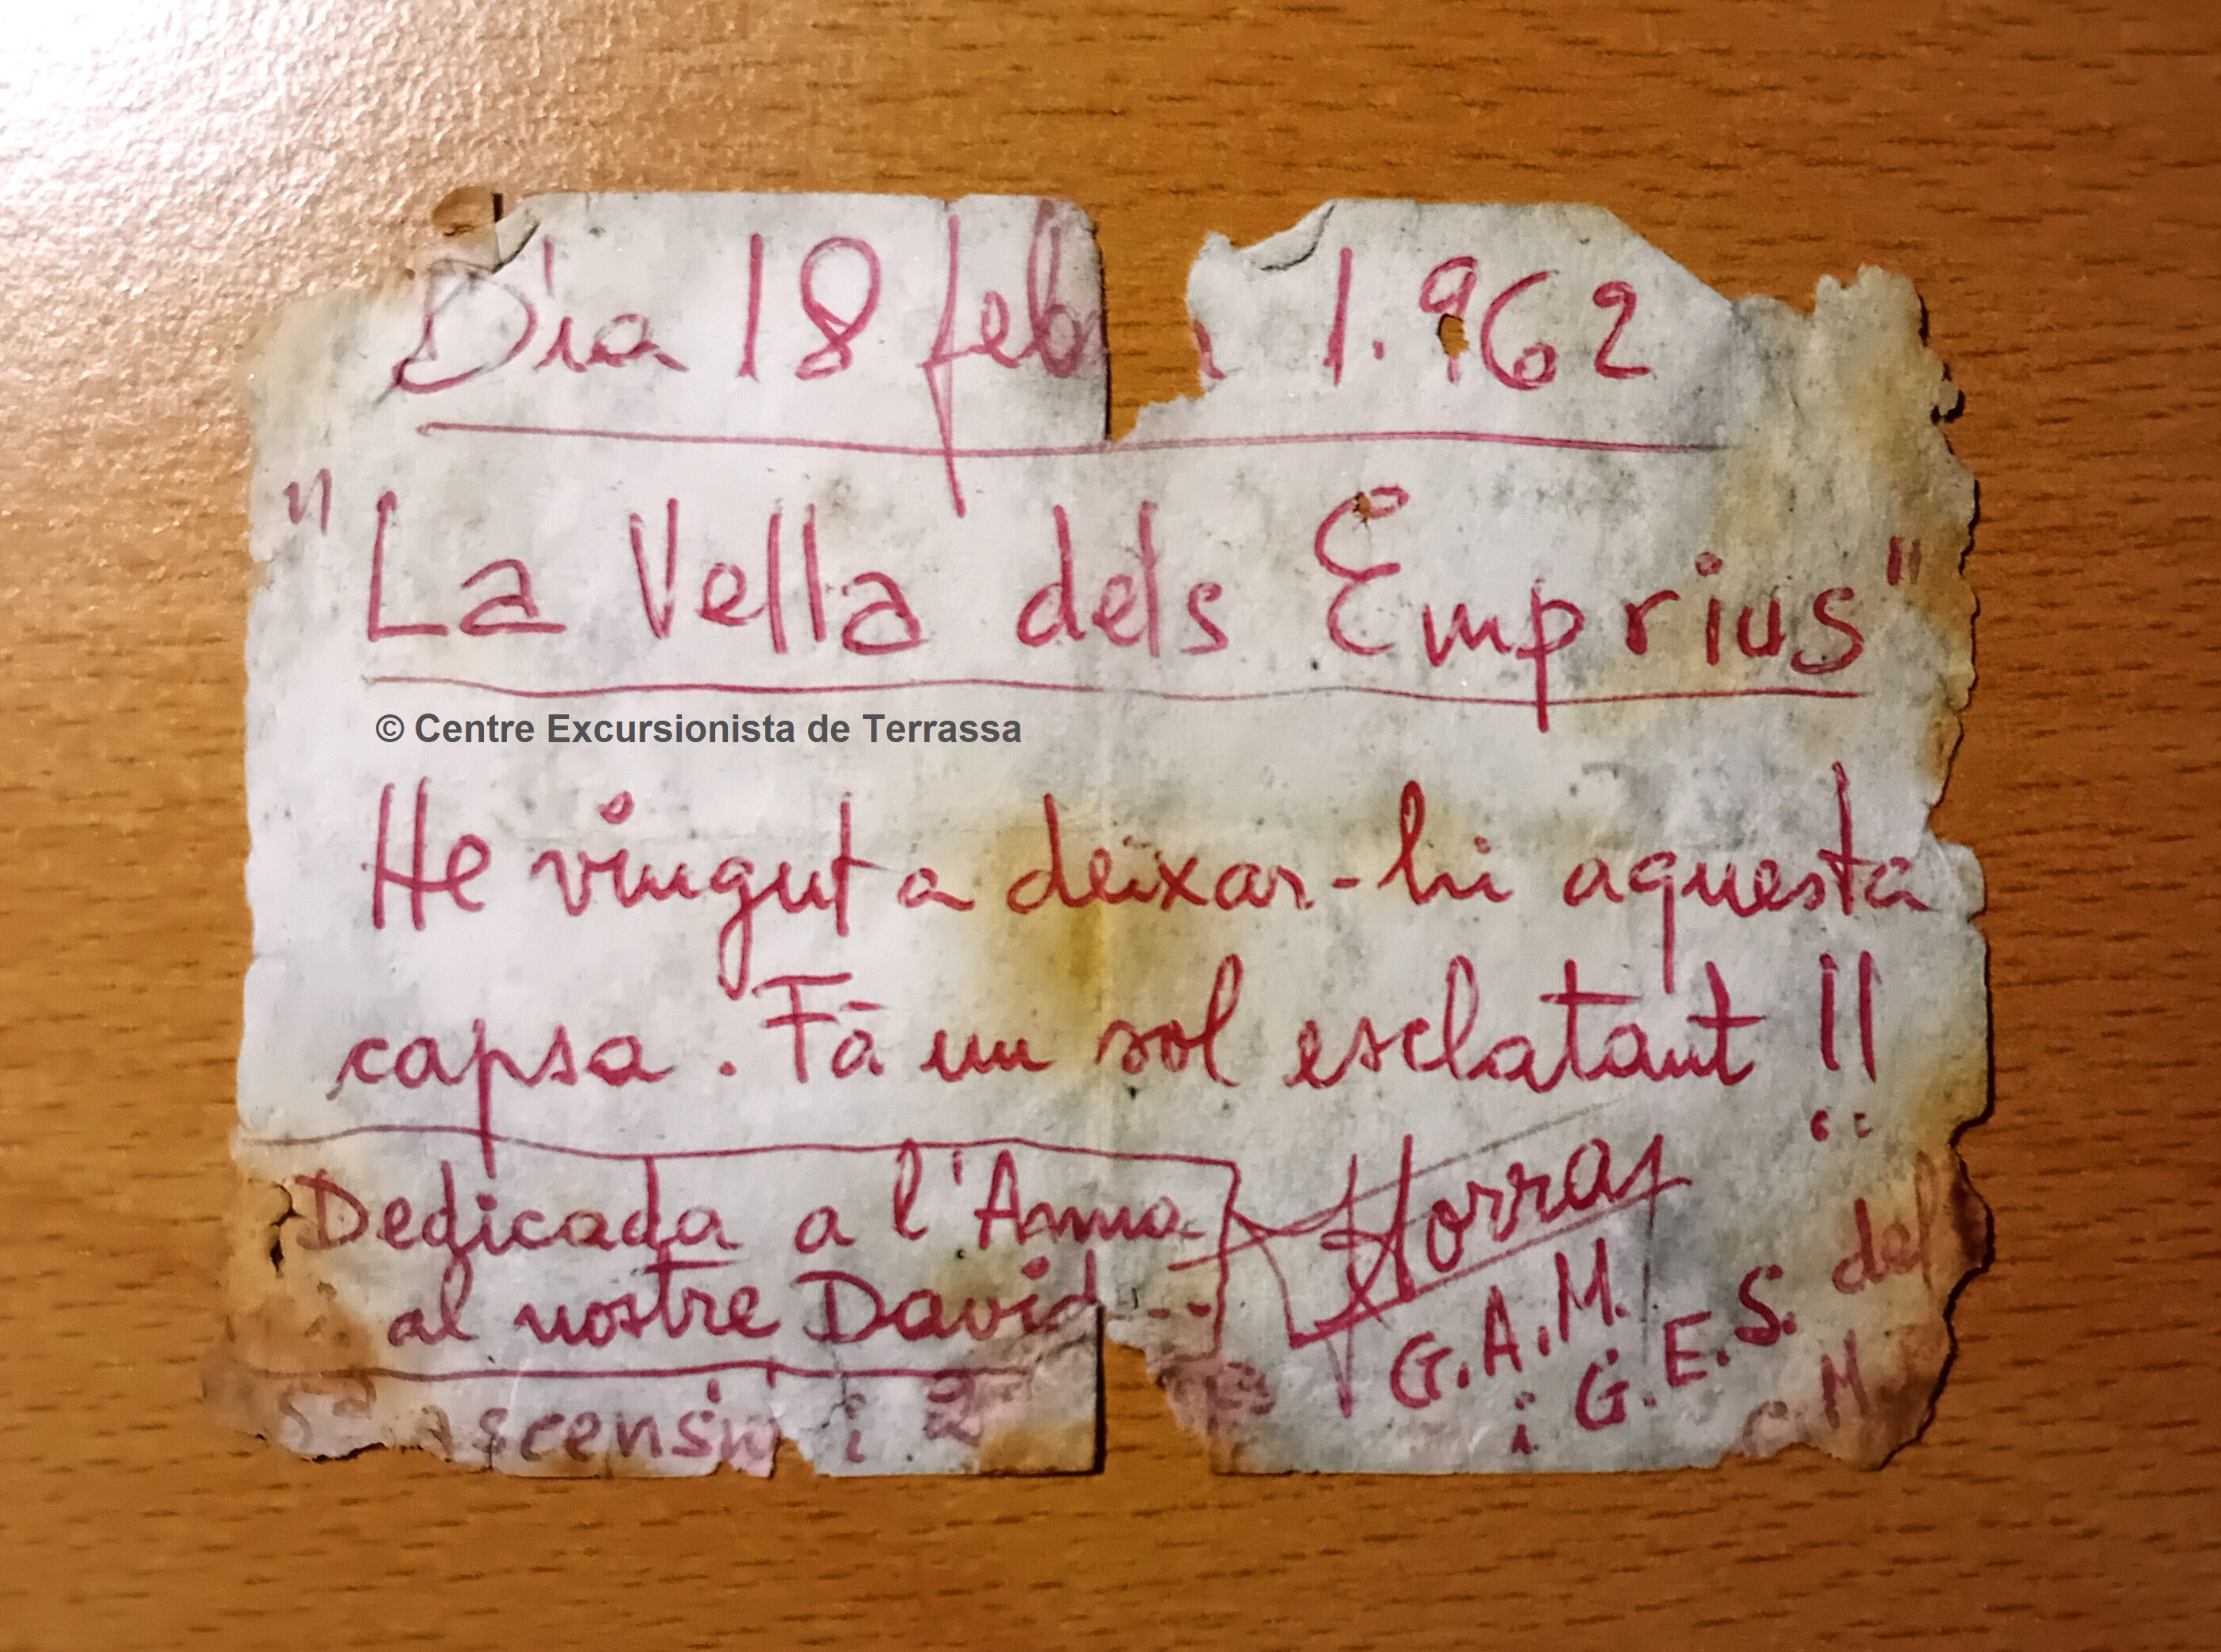 Dia 18 feb 1.962
"La Vella dels Emprius"
© Centre Excursionista de Terrassa
He vingut a deixar-hi aquesta
capsa. Fà un sol esclatant!!
Dedicada a l'Anna
al nostre David
G.A.M.
i G.E.S. del
C. M
ascensió i 2ª